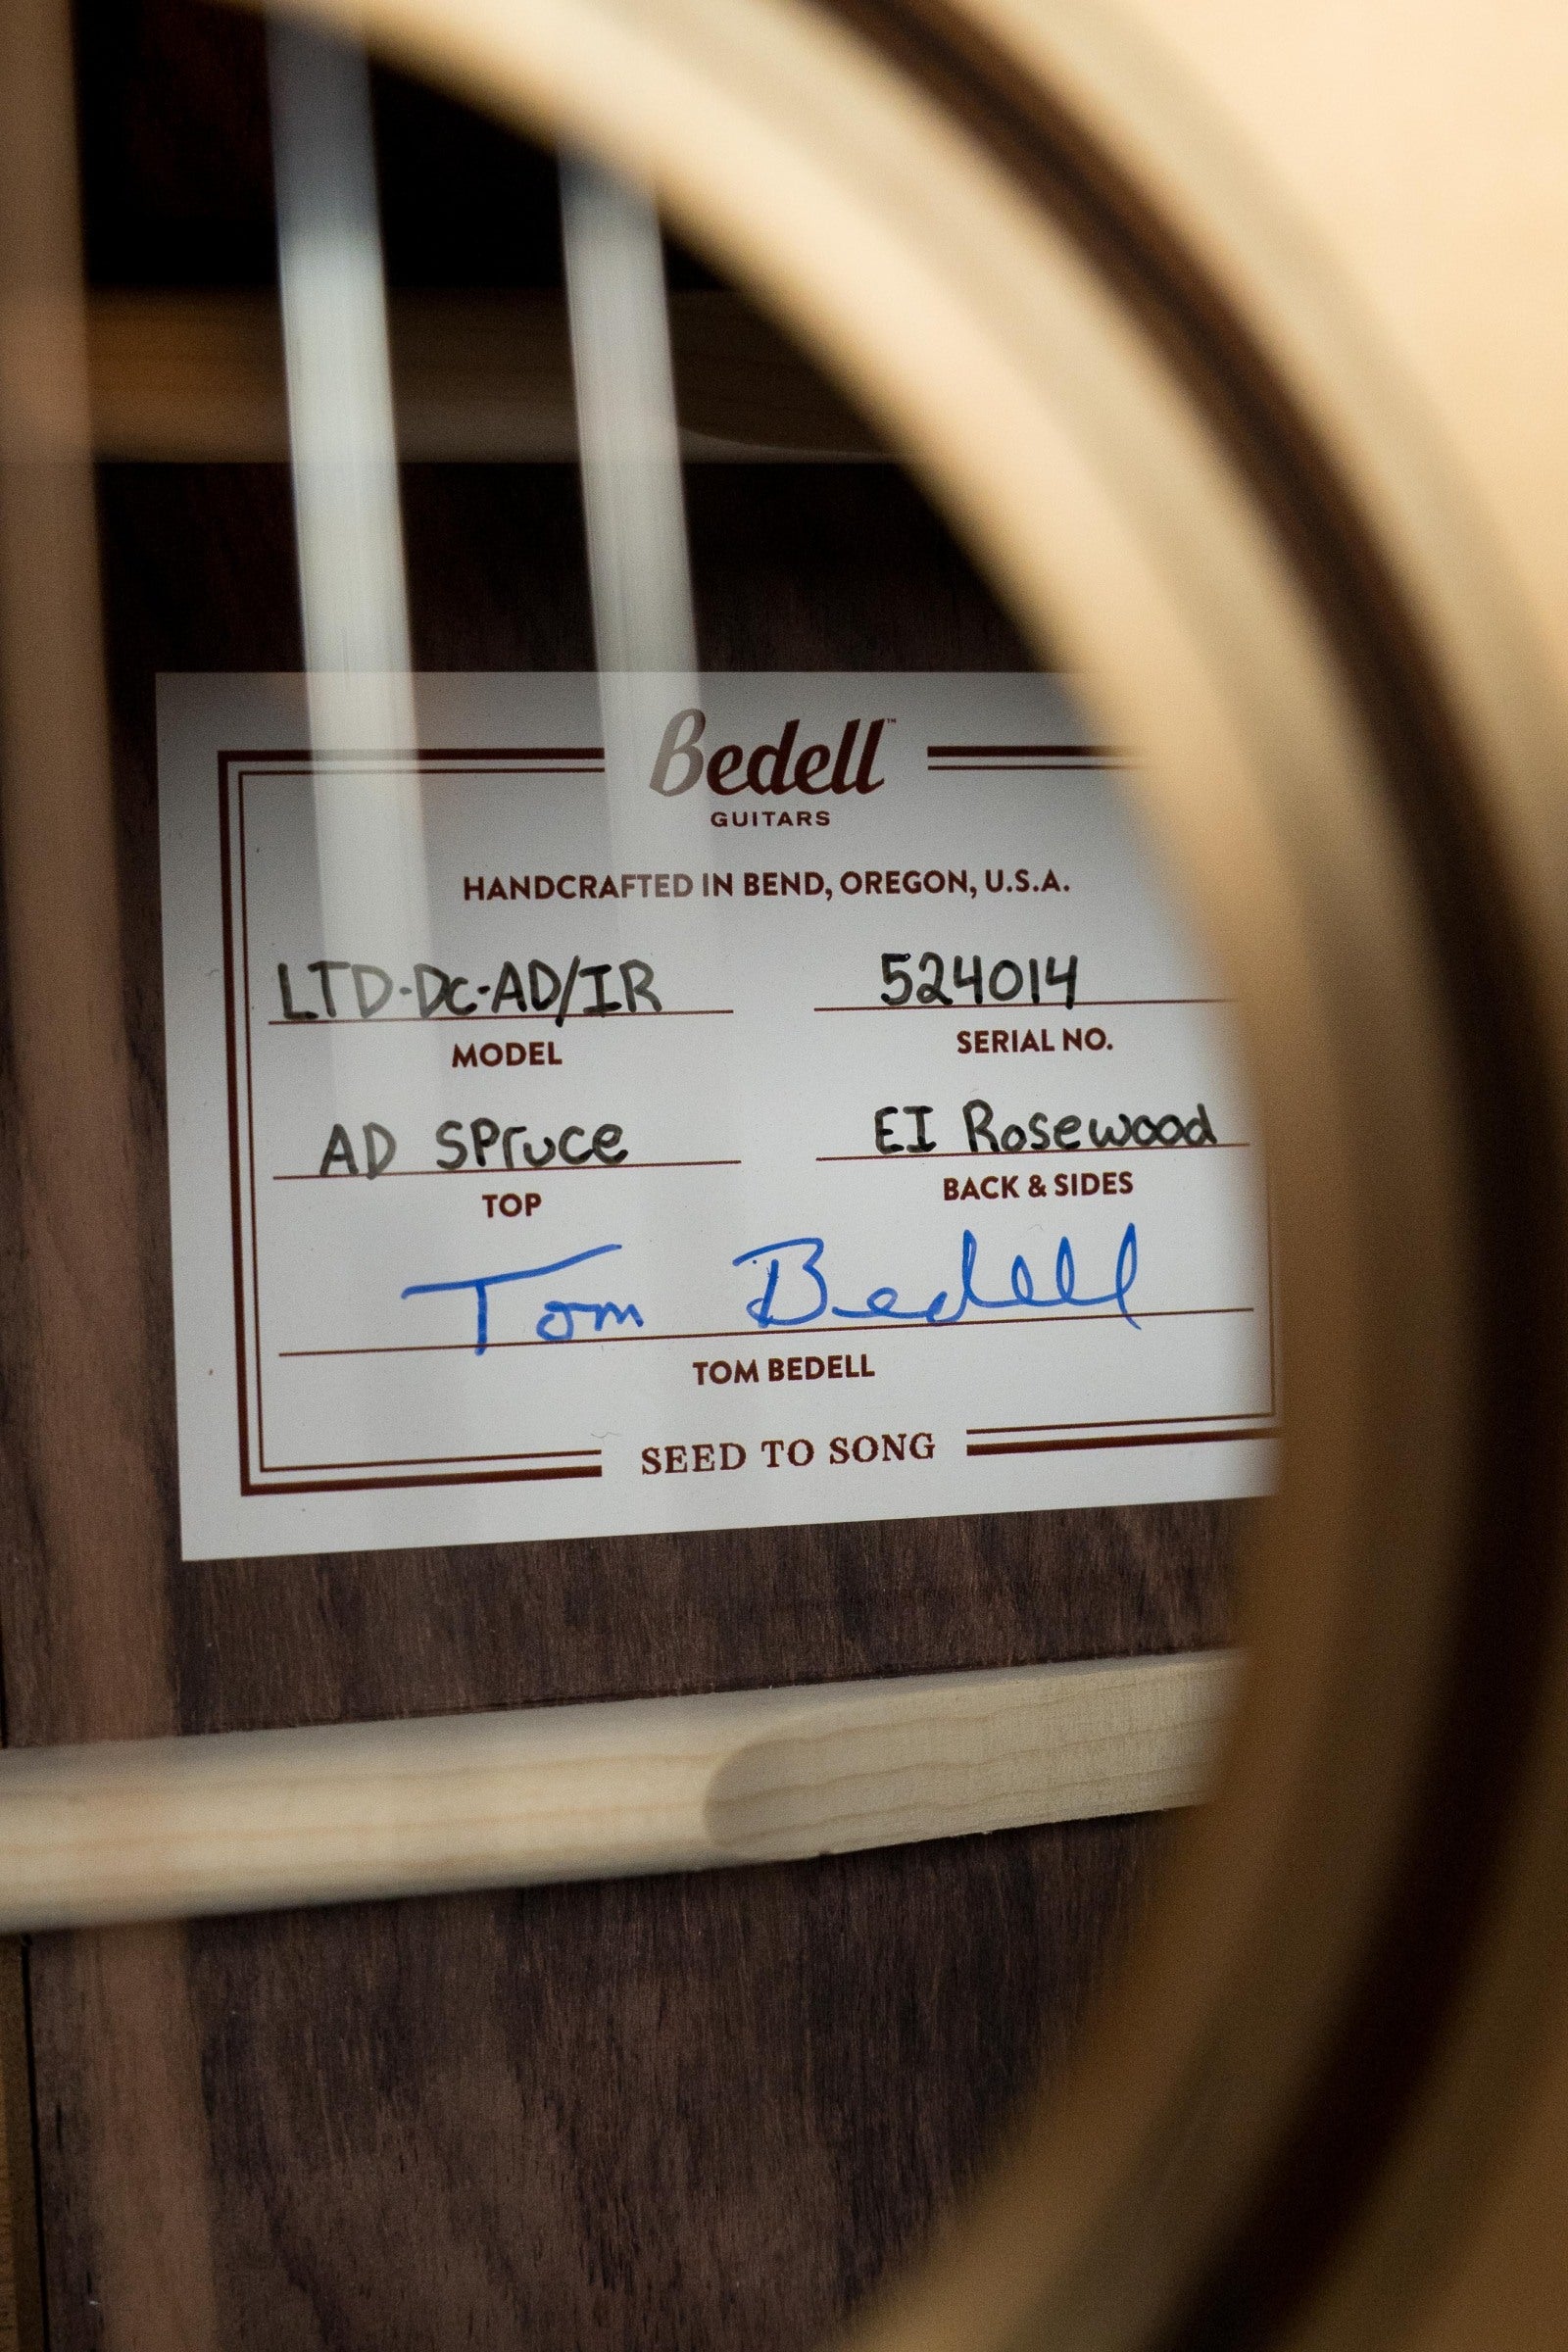 Bedell™
GUITARS
HANDCRAFTED IN BEND, OREGON, U.S.A.
LTD-DC-AD/IR 524014
MODEL SERIAL NO.
AD SPruce EI Rosewood
TOP BACK & SIDES
Tom Bedell
TOM BEDELL
SEED TO SONG